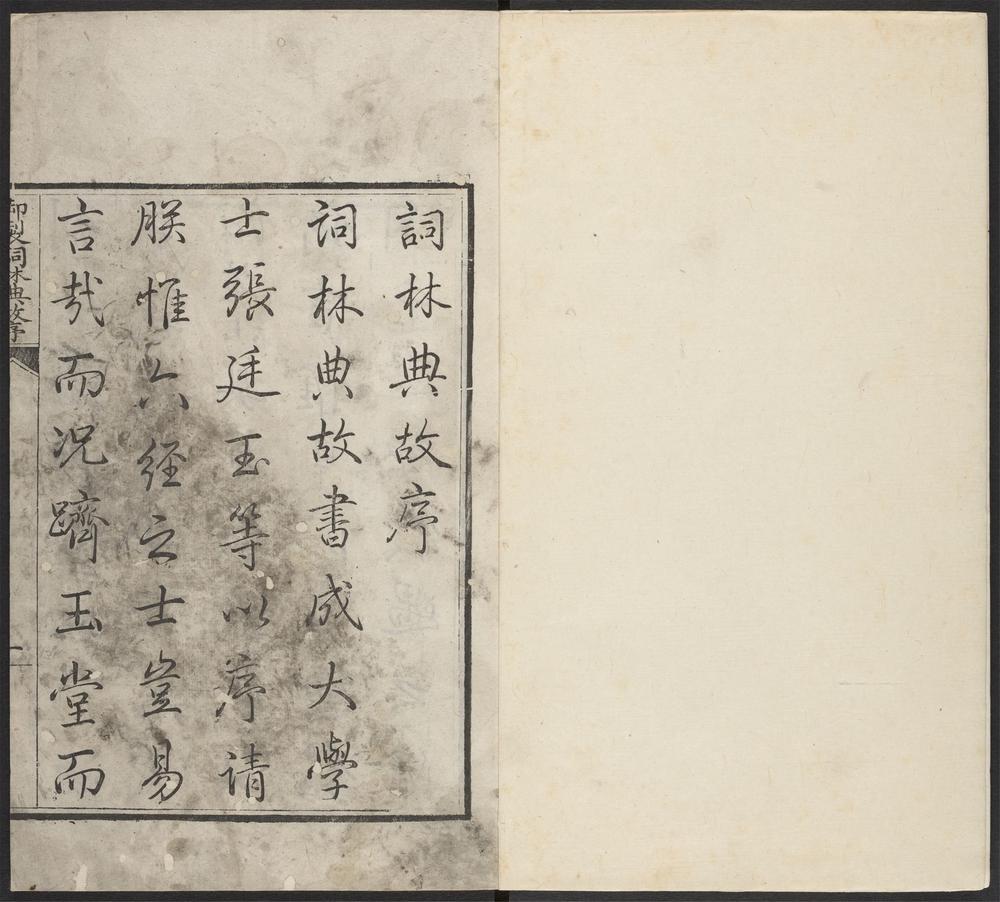 詞林典故序
詞林典故書成大學
士張廷玉等以序请
朕惟六經之士豈易
言㢤而况躋玉堂而
御製詞林典故序
一